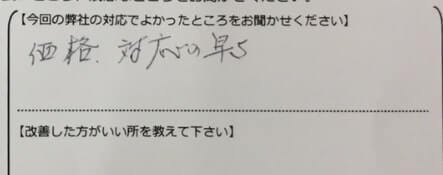 【今回の弊社の対応でよかったところをお聞かせください】
価格、対応の早さ
【改善した方がいい所を教えて下さい】